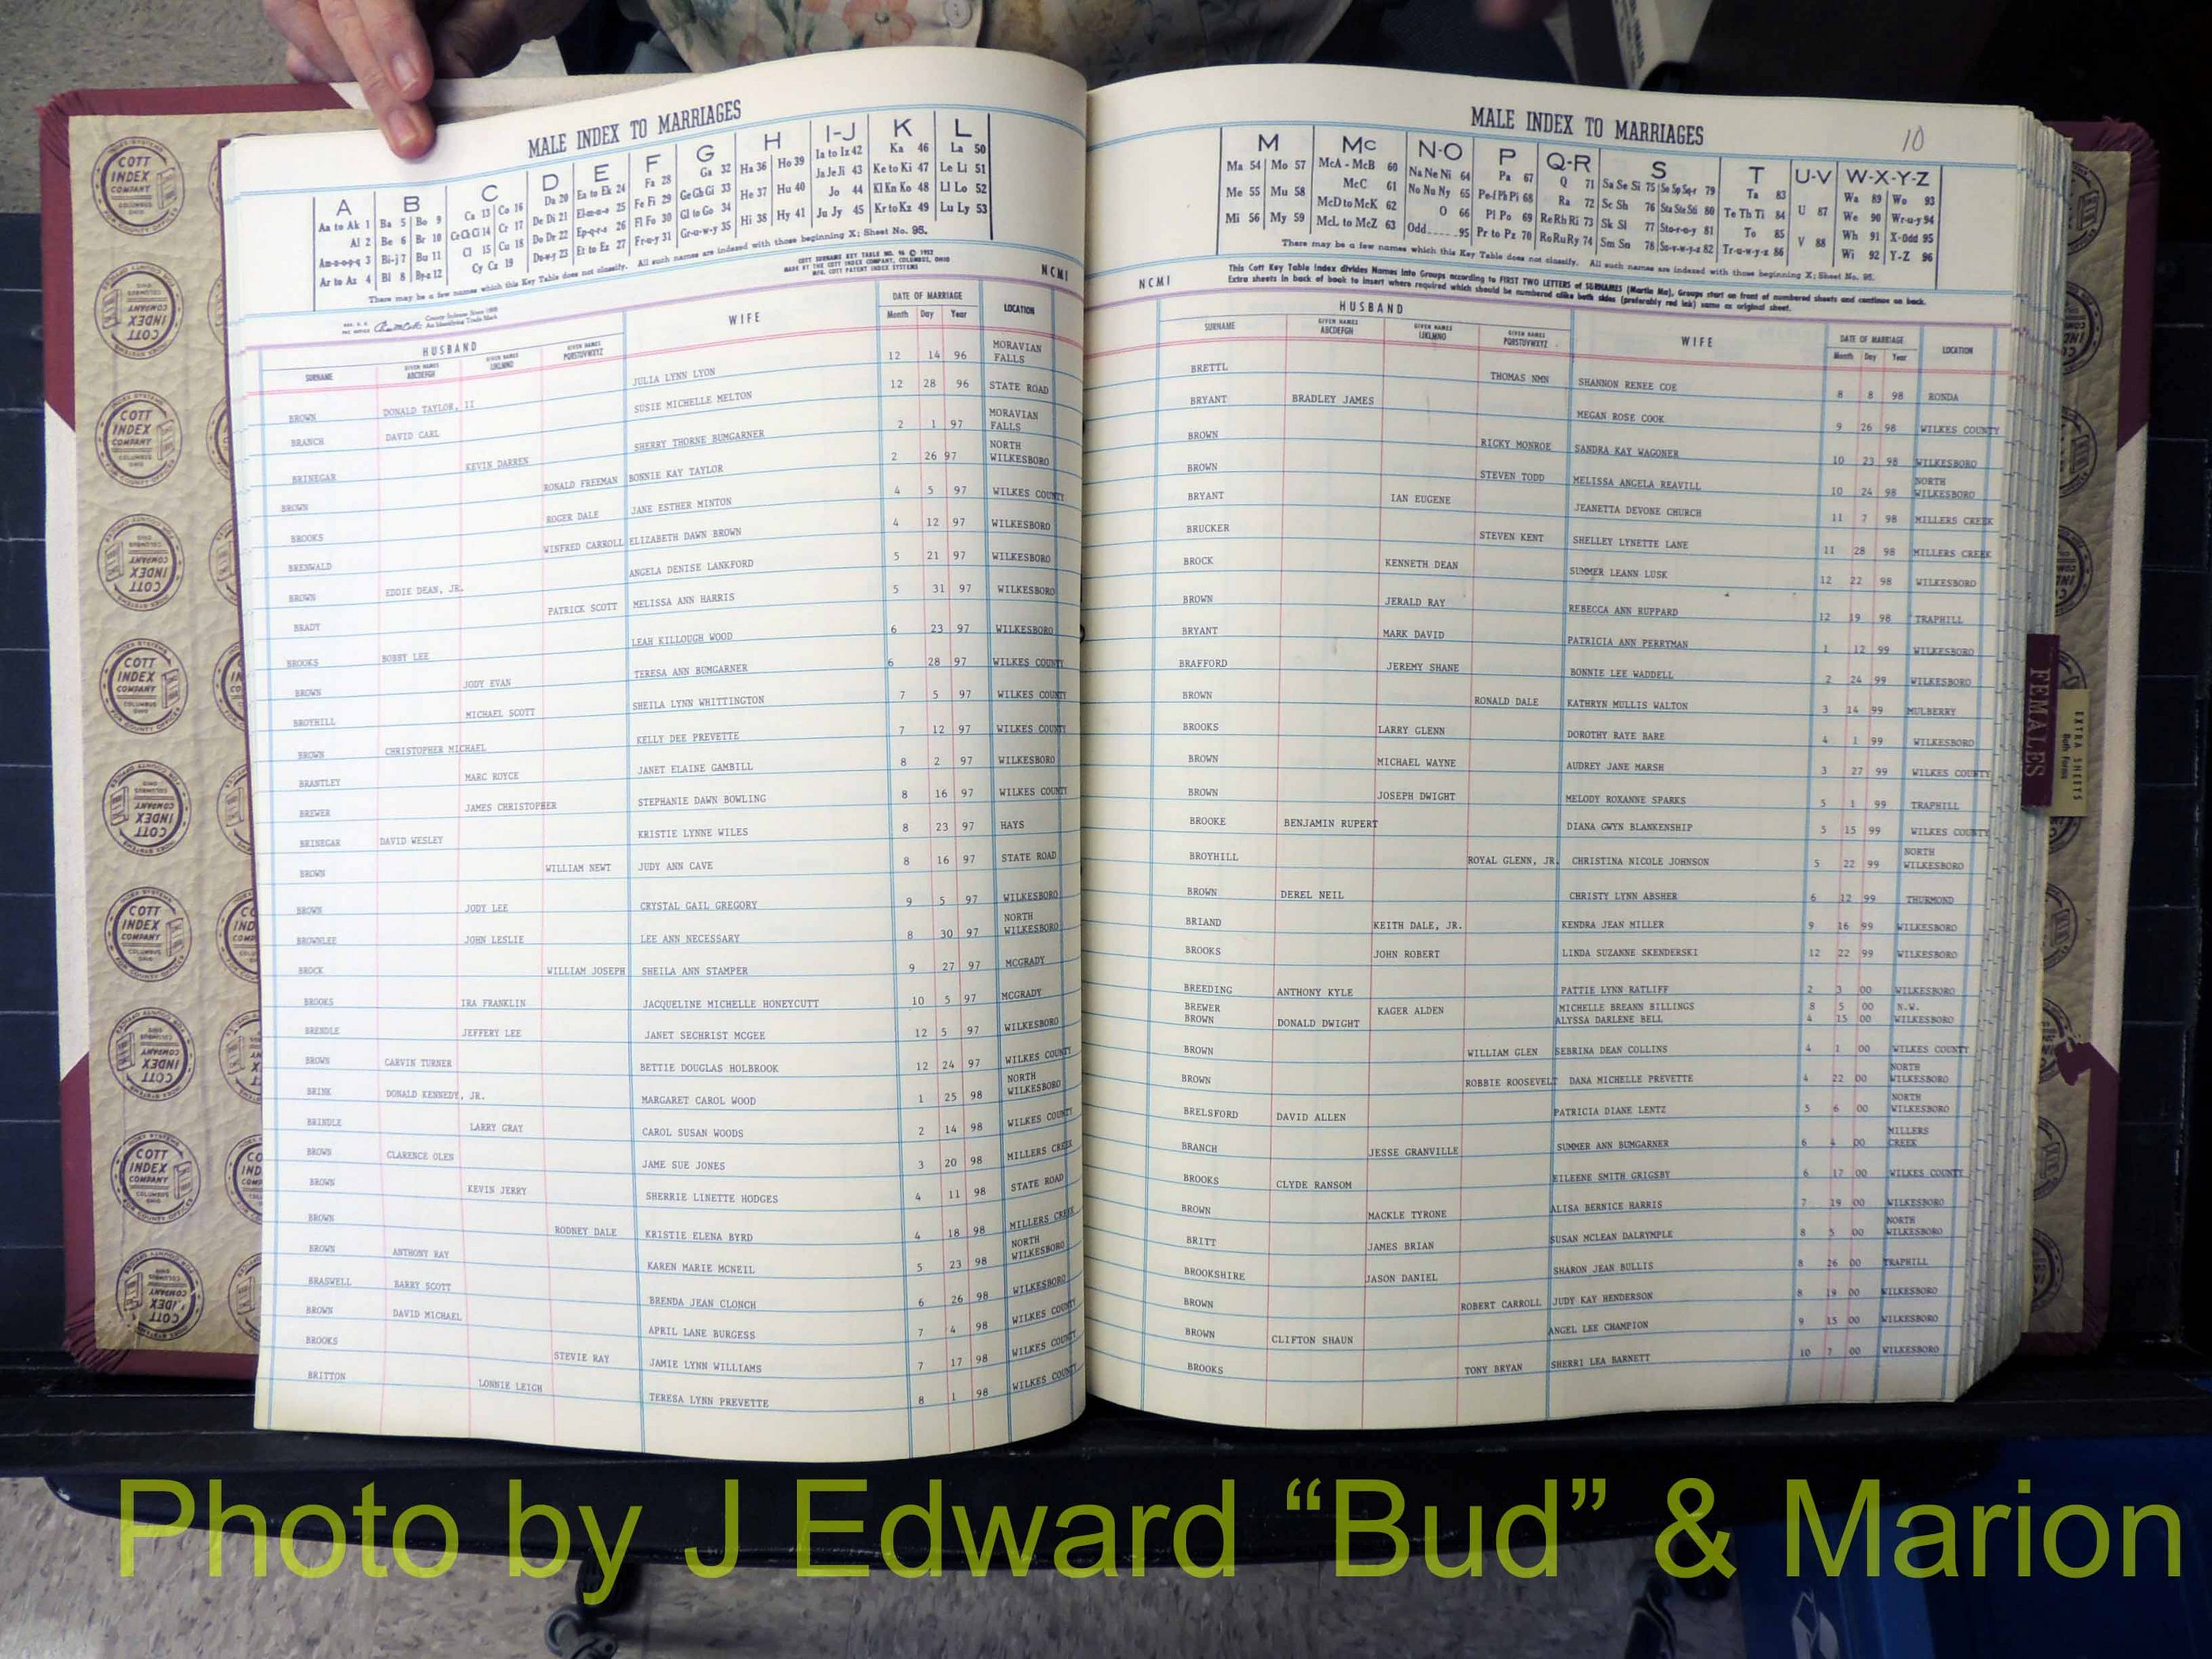 MALE INDEX TO MARRIAGES
A B C D E F G H I-J K L
Aa to Ak 1 Ba 5 Bo 9 Ca 13 Co 16 Da 20 Ea to Ek 24 Fa 28 Ga 32 Ha 36 Ho 39 Ia to Iz 42 Ka 46 La 50
Al 2 Be 6 Br 10 Ce Ch Ci 14 Cr 17 De Di 21 El-m-n-o 25 Fe Fi 29 Ge Gh Gi 33 He 37 Hu 40 Ja Je Ji 43 Ke to Ki 47 Le Li 51
Am-n-o-p-q 3 Bi-j 7 Bu 11 Cl 15 Cu 18 Do Dr 22 Ep-q-r-s 26 Fl Fo 30 Gl to Go 34 Hi 38 Hy 41 Jo 44 Kl Kn Ko 48 Ll Lo 52
Ar to Az 4 Bl 8 By-z 12 Cy Cz 19 Du-w-y 23 Et to Ez 27 Fr-u-y 31 Gr-u-w-y 35 Ju Jy 45 Kr to Kz 49 Lu Ly 53
There may be a few names which this Key Table does not classify. All such names are indexed with those beginning X; Sheet No. 95.
COTT SURNAME KEY TABLE NO. 96 © 1952
MADE BY THE COTT INDEX COMPANY, COLUMBUS, OHIO
MFG. COTT PATENT INDEX SYSTEMS
NCMI
HUSBAND WIFE DATE OF MARRIAGE LOCATION
SURNAME GIVEN NAMES ABCDEFGH GIVEN NAMES IJKLMNO GIVEN NAMES PQRSTUVWXYZ Month Day Year
BROWN DONALD TAYLOR, II JULIA LYNN LYON 12 14 96 MORAVIAN FALLS
BRANCH DAVID CARL SUSIE MICHELLE MELTON 12 28 96 STATE ROAD
BRINEGAR KEVIN DARREN SHERRY THORNE BUMGARNER 2 1 97 MORAVIAN FALLS
BROWN RONALD FREEMAN BONNIE KAY TAYLOR 2 26 97 NORTH WILKESBORO
BROOKS ROGER DALE JANE ESTHER MINTON 4 5 97 WILKES COUNTY
BRENWALD WINFRED CARROLL ELIZABETH DAWN BROWN 4 12 97 WILKESBORO
BROWN EDDIE DEAN, JR. ANGELA DENISE LANKFORD 5 21 97 WILKESBORO
BRADY PATRICK SCOTT MELISSA ANN HARRIS 5 31 97 WILKESBORO
BROOKS BOBBY LEE LEAH KILLOUGH WOOD 6 23 97 WILKESBORO
BROWN JODY EVAN TERESA ANN BUMGARNER 6 28 97 WILKES COUNTY
BROYHILL MICHAEL SCOTT SHEILA LYNN WHITTINGTON 7 5 97 WILKES COUNTY
BROWN CHRISTOPHER MICHAEL KELLY DEE PREVETTE 7 12 97 WILKES COUNTY
BRANTLEY MARC ROYCE JANET ELAINE GAMBILL 8 2 97 WILKESBORO
BREWER JAMES CHRISTOPHER STEPHANIE DAWN BOWLING 8 16 97 WILKES COUNTY
BRINEGAR DAVID WESLEY KRISTIE LYNNE WILES 8 23 97 HAYS
BROWN WILLIAM NEWT JUDY ANN CAVE 8 16 97 STATE ROAD
BROWN JODY LEE CRYSTAL GAIL GREGORY 9 5 97 WILKESBORO
BROWNLEE JOHN LESLIE LEE ANN NECESSARY 8 30 97 NORTH WILKESBORO
BROCK WILLIAM JOSEPH SHEILA ANN STAMPER 9 27 97 MCGRADY
BROOKS IRA FRANKLIN JACQUELINE MICHELLE HONEYCUTT 10 5 97 MCGRADY
BRENDLE JEFFERY LEE JANET SECHRIST MCGEE 12 5 97 WILKESBORO
BROWN CARVIN TURNER BETTIE DOUGLAS HOLBROOK 12 24 97 WILKES COUNTY
BRINK DONALD KENNEDY, JR. MARGARET CAROL WOOD 1 25 98 NORTH WILKESBORO
BRINDLE LARRY GRAY CAROL SUSAN WOODS 2 14 98 WILKES COUNTY
BROWN CLARENCE OLEN JAME SUE JONES 3 20 98 MILLERS CREEK
BROWN KEVIN JERRY SHERRIE LINETTE HODGES 4 11 98 STATE ROAD
BROWN RODNEY DALE KRISTIE ELENA BYRD 4 18 98 MILLERS CREEK
BROWN ANTHONY RAY KAREN MARIE MCNEIL 5 23 98 NORTH WILKESBORO
BRASWELL BARRY SCOTT BRENDA JEAN CLONCH 6 26 98 WILKESBORO
BROWN DAVID MICHAEL APRIL LANE BURGESS 7 4 98 WILKES COUNTY
BROOKS STEVIE RAY JAMIE LYNN WILLIAMS 7 17 98 WILKES COUNTY
BRITTON LONNIE LEIGH TERESA LYNN PREVETTE 8 1 98 WILKES COUNTY
MALE INDEX TO MARRIAGES 10
M Mc N-O P Q-R S T U-V W-X-Y-Z
Ma 54 Mo 57 McA - McB 60 Na Ne Ni 64 Pa 67 Q 71 Sa Se Si 75 So Sp Sq-r 79 Ta 83 U 87 Wa 89 Wo 93
Me 55 Mu 58 McC 61 No Nu Ny 65 Pe-f Ph Pi 68 Ra 72 Sc Sh 76 Sta Ste Sti 80 Te Th Ti 84 V 88 We 90 Wr-u-y 94
Mi 56 My 59 McD to McK 62 O 66 Pl Po 69 Re Rh Ri 73 Sk Sl 77 Sto-r-u-y 81 To 85 Wh 91 X-Odd 95
McL to McZ 63 Odd 95 Pr to Pz 70 Ro Ru Ry 74 Sm Sn 78 Su-v-w-y-z 82 Tr-u-w-y-z 86 Wi 92 Y-Z 96
There may be a few names which this Key Table does not classify. All such names are indexed with those beginning X; Sheet No. 95.
NCMI
This Cott Key Table Index divides Names into Groups according to FIRST TWO LETTERS of SURNAMES (Martin Ma), Groups start on front of numbered sheets and continue on back.
Extra sheets in back of book to insert where required which should be numbered alike both sides (preferably red ink) same as original sheet.
HUSBAND WIFE DATE OF MARRIAGE LOCATION
SURNAME GIVEN NAMES ABCDEFGH GIVEN NAMES IJKLMNO GIVEN NAMES PQRSTUVWXYZ Month Day Year
BRETTL THOMAS NMN SHANNON RENEE COE 8 8 98 RONDA
BRYANT BRADLEY JAMES MEGAN ROSE COOK 9 26 98 WILKES COUNTY
BROWN RICKY MONROE SANDRA KAY WAGONER 10 23 98 WILKESBORO
BROWN STEVEN TODD MELISSA ANGELA REAVILL 10 24 98 NORTH WILKESBORO
BRYANT IAN EUGENE JEANETTA DEVONE CHURCH 11 7 98 MILLERS CREEK
BRUCKER STEVEN KENT SHELLEY LYNETTE LANE 11 28 98 MILLERS CREEK
BROCK KENNETH DEAN SUMMER LEANN LUSK 12 22 98 WILKESBORO
BROWN JERALD RAY REBECCA ANN RUPPARD 12 19 98 TRAPHILL
BRYANT MARK DAVID PATRICIA ANN PERRYMAN 1 12 99 WILKESBORO
BRAFFORD JEREMY SHANE BONNIE LEE WADDELL 2 24 99 WILKESBORO
BROWN RONALD DALE KATHRYN MULLIS WALTON 3 14 99 MULBERRY
BROOKS LARRY GLENN DOROTHY RAYE BARE 4 1 99 WILKESBORO
BROWN MICHAEL WAYNE AUDREY JANE MARSH 3 27 99 WILKES COUNTY
BROWN JOSEPH DWIGHT MELODY ROXANNE SPARKS 5 1 99 TRAPHILL
BROOKE BENJAMIN RUPERT DIANA GWYN BLANKENSHIP 5 15 99 WILKES COUNTY
BROYHILL ROYAL GLENN, JR. CHRISTINA NICOLE JOHNSON 5 22 99 NORTH WILKESBORO
BROWN DEREL NEIL CHRISTY LYNN ABSHER 6 12 99 THURMOND
BRIAND KEITH DALE, JR. KENDRA JEAN MILLER 9 16 99 WILKESBORO
BROOKS JOHN ROBERT LINDA SUZANNE SKENDERSKI 12 22 99 WILKESBORO
BREEDING ANTHONY KYLE PATTIE LYNN RATLIFF 2 3 00 WILKESBORO
BREWER KAGER ALDEN MICHELLE BREANN BILLINGS 8 5 00 N.W.
BROWN DONALD DWIGHT ALYSSA DARLENE BELL 4 15 00 WILKESBORO
BROWN WILLIAM GLEN SEBRINA DEAN COLLINS 4 1 00 WILKES COUNTY
BROWN ROBBIE ROOSEVELT DANA MICHELLE PREVETTE 4 22 00 NORTH WILKESBORO
BRELSFORD DAVID ALLEN PATRICIA DIANE LENTZ 5 6 00 NORTH WILKESBORO
BRANCH JESSE GRANVILLE SUMMER ANN BUMGARNER 6 4 00 MILLERS CREEK
BROOKS CLYDE RANSOM EILEENE SMITH GRIGSBY 6 17 00 WILKES COUNTY
BROWN MACKLE TYRONE ALISA BERNICE HARRIS 7 19 00 WILKESBORO
BRITT JAMES BRIAN SUSAN MCLEAN DALRYMPLE 8 5 00 NORTH WILKESBORO
BROOKSHIRE JASON DANIEL SHARON JEAN BULLIS 8 26 00 TRAPHILL
BROWN ROBERT CARROLL JUDY KAY HENDERSON 8 19 00 WILKESBORO
BROWN CLIFTON SHAUN ANGEL LEE CHAMPION 9 15 00 WILKESBORO
BROOKS TONY BRYAN SHERRI LEA BARNETT 10 7 00 WILKESBORO
FEMALES
EXTRA SHEETS
Both Forms
COTT INDEX COMPANY COLUMBUS OHIO
Photo by J Edward “Bud” & Marion